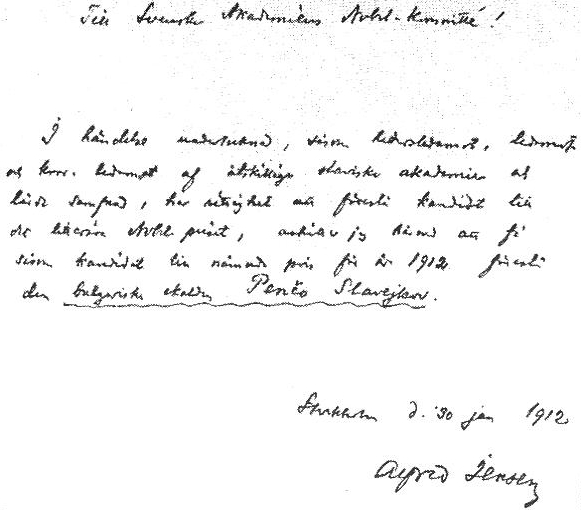 Till Svenska Akademiens Nobel-Kommitté!
I händelse undertecknad, såsom hedersledamot, ledamot
och korr. ledamot af åtskilliga slaviska akademier och
lärda samfund, har rättighet att föreslå kandidat till
det litterära Nobel priset, anhåller jag härmed att få
såsom kandidat till nämnda pris för år 1912 föreslå
den bulgariske skalden Penčo Slavejkov.
Stockholm d. 30 jan 1912
Alfred Jensen